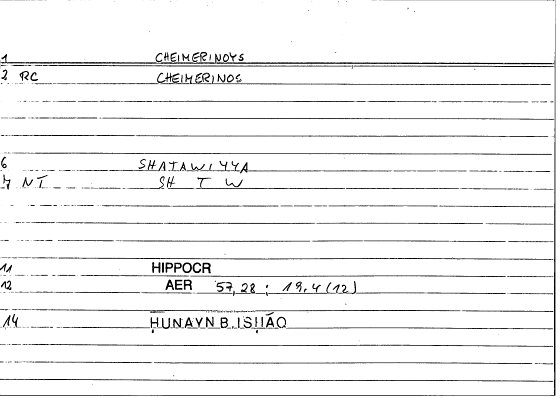 1 CHEIMERINOYS
2 RC CHEIMERINOS
6 SHATAWIYYA
7 NT SH T W
11 HIPPOCR
12 AER 57,28 ; 19,4 (12)
14 ḤUNAYN B. ISḤĀQ